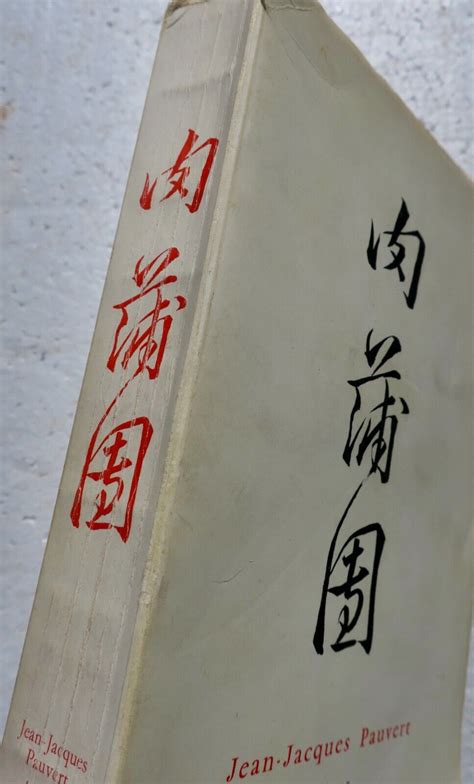 肉蒲團
Jean-Jacques
Pauvert
肉蒲團
Jean-Jacques Pauvert